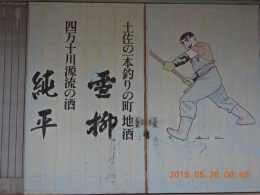 土佐の一本釣りの町 地酒
雪柳
四万十川源流の酒
純平
2019.05.26 08:46